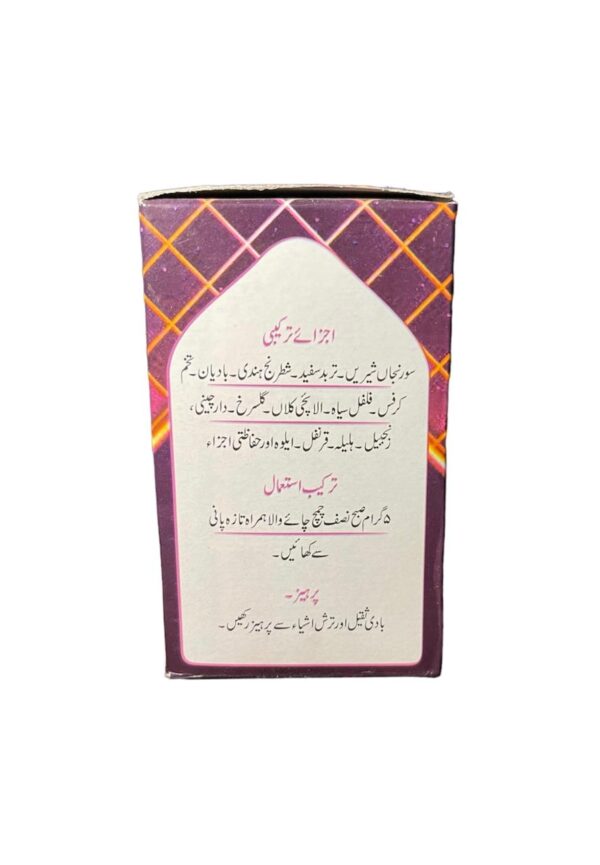 اجزائے ترکیبی
سورنجاں شیریں۔ تربد سفید۔ شطرنج ہندی۔ بادیان۔ تخم
کرفس۔ فلفل سیاہ۔ الائچی کلاں۔ گلسرخ۔ دارچینی،
زنجبیل۔ ہلیلہ۔ قرنفل۔ ایلوہ اور حفاظتی اجزاء
ترکیب استعمال
۵ گرام صبح نصف چمچ چائے والا ہمراہ تازہ پانی
سے کھائیں۔
پرہیز۔
بادی ثقیل اور ترش اشیاء سے پرہیز رکھیں۔